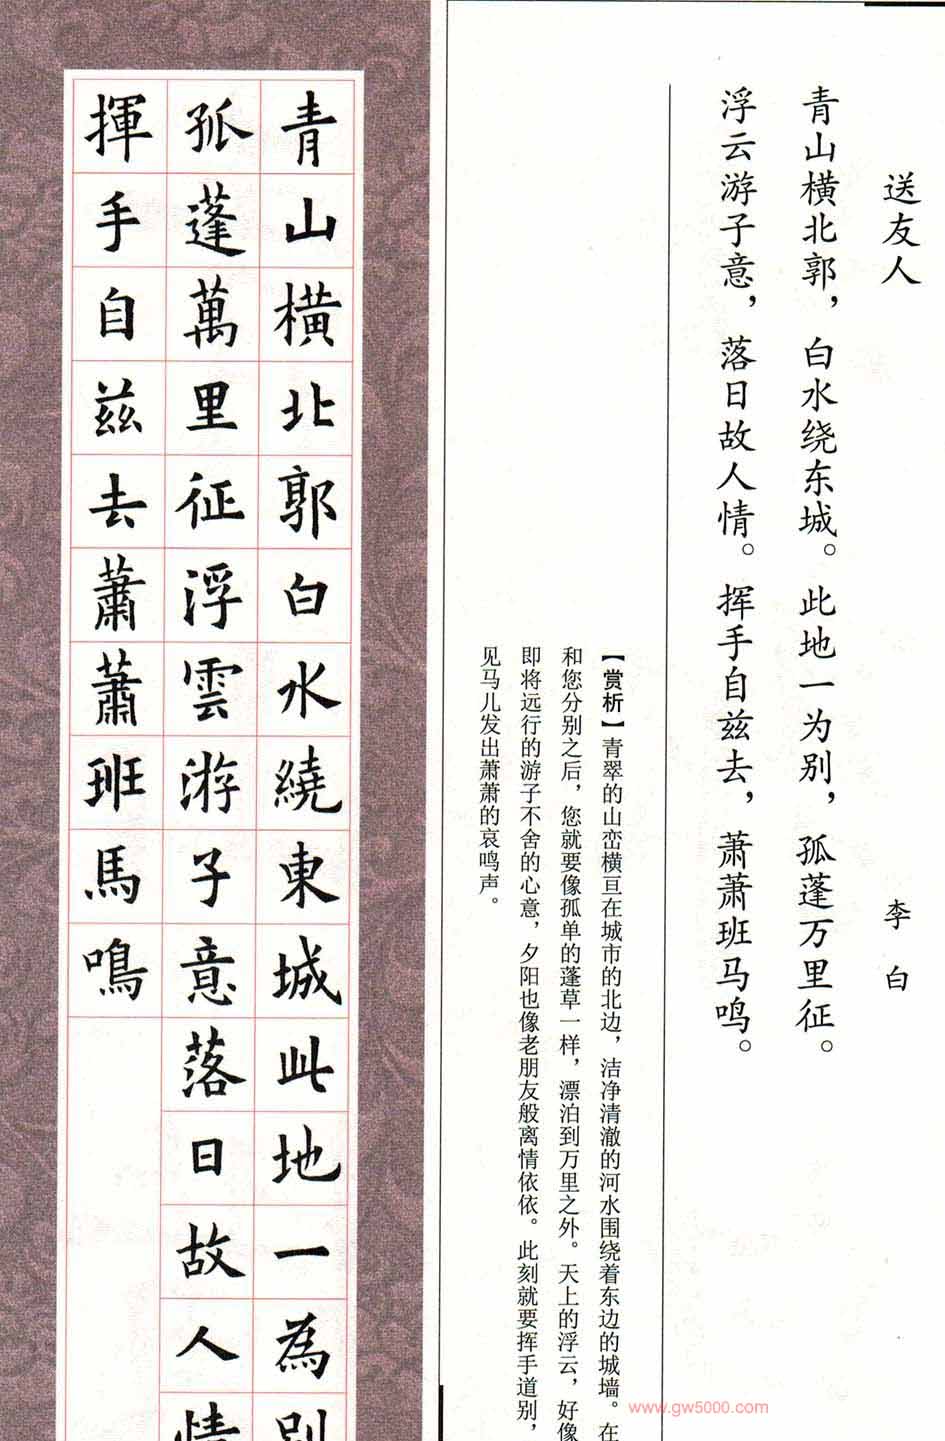 送友人
李白
青山横北郭，白水绕东城。此地一为别，孤蓬万里征。
浮云游子意，落日故人情。挥手自兹去，萧萧班马鸣。
【赏析】青翠的山峦横亘在城市的北边，洁净清澈的河水围绕着东边的城墙。在
和您分别之后，您就要像孤单的蓬草一样，漂泊到万里之外。天上的浮云，好像
即将远行的游子不舍的心意，夕阳也像老朋友般离情依依。此刻就要挥手道别，
见马儿发出萧萧的哀鸣声。
青山橫北郭白水繞東城此地一為別
孤蓬萬里征浮雲游子意落日故人情
揮手自兹去蕭蕭班馬鳴
www.gw5000.com